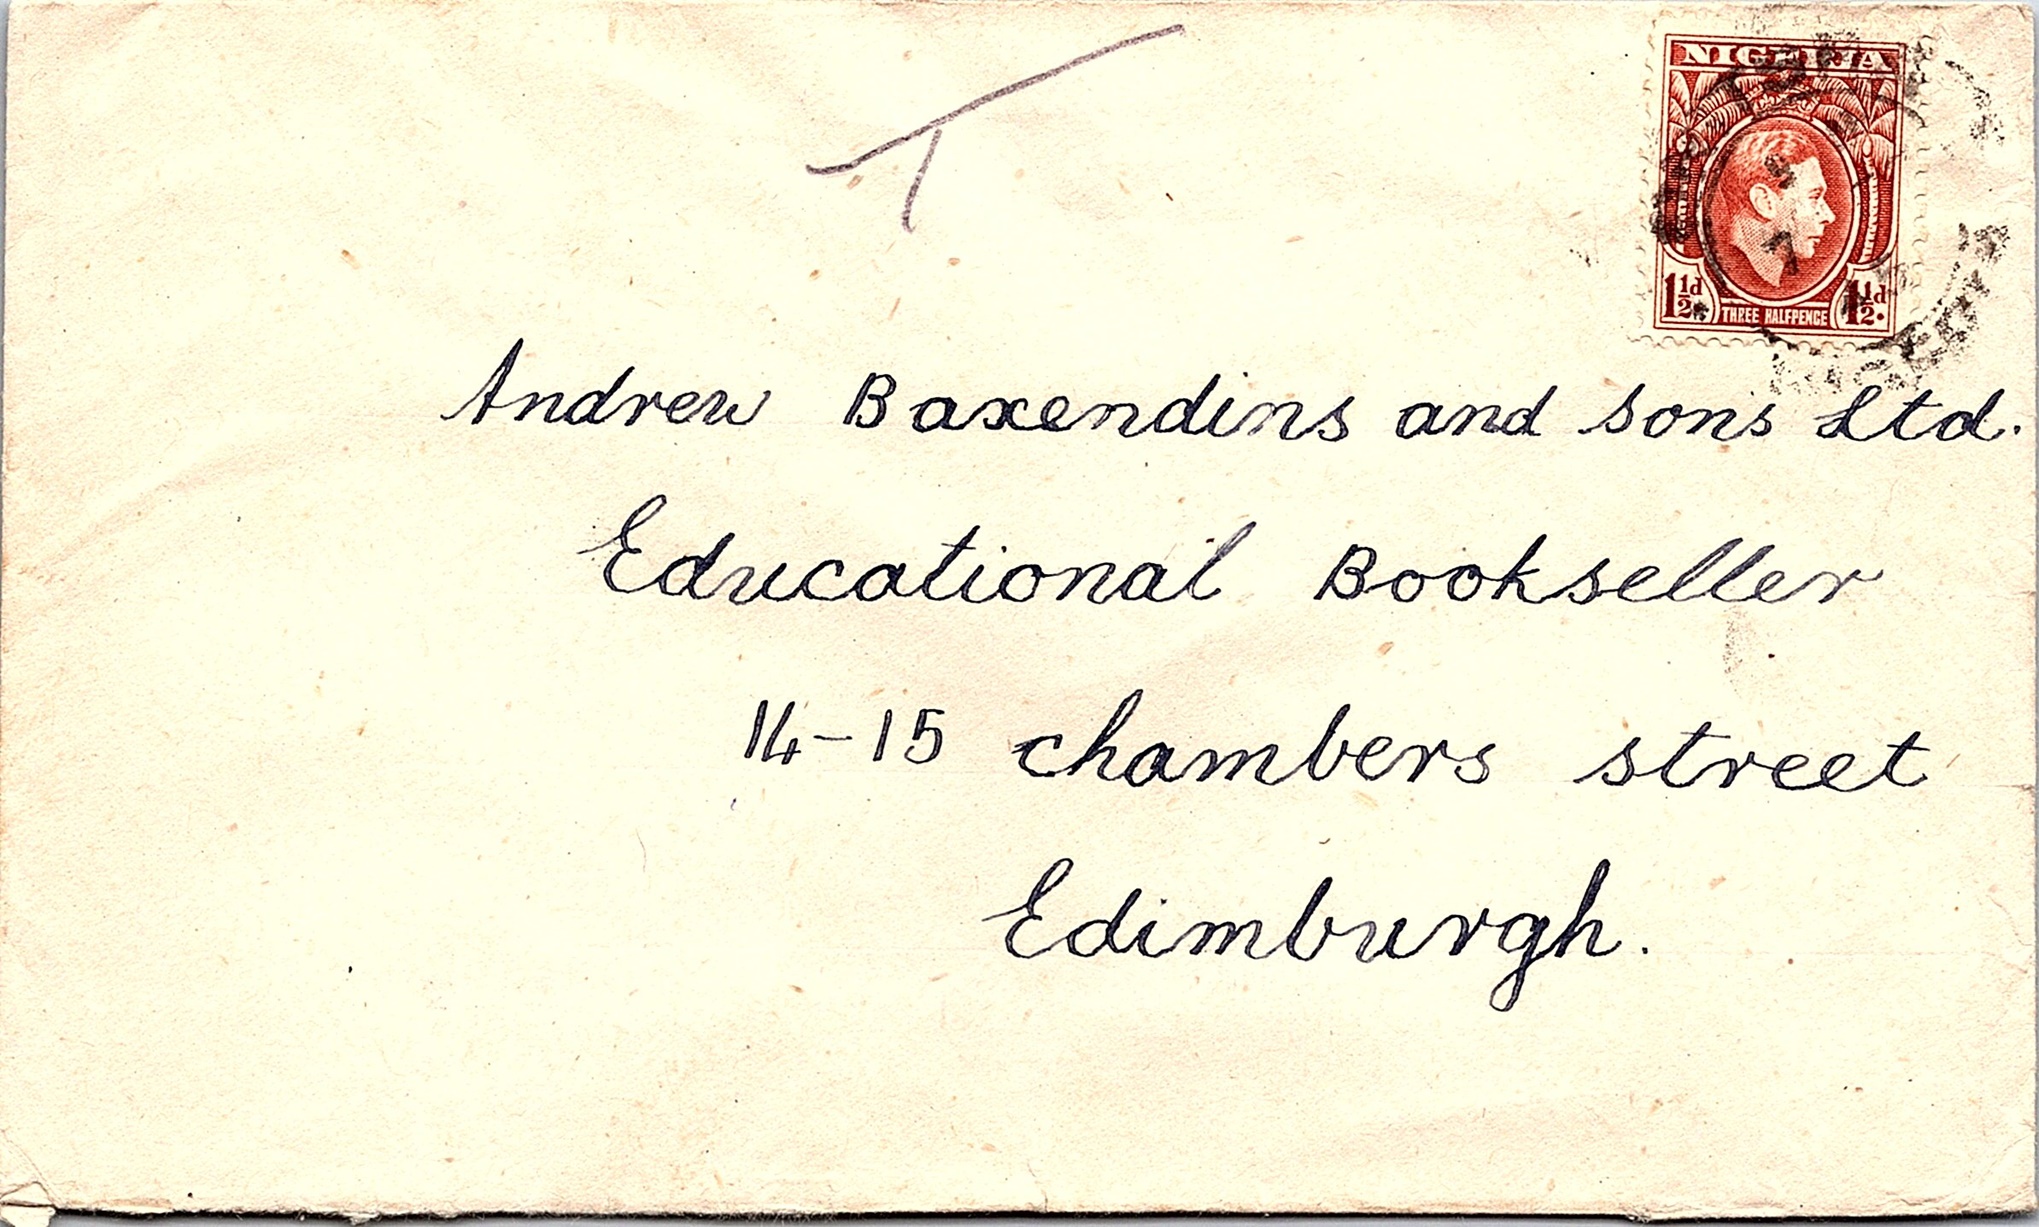 T
NIGERIA
1½d
THREE HALFPENCE
1½d.
Andrew Baxendins and sons Ltd.
Educational Bookseller
14-15 chambers street
Edimburgh.